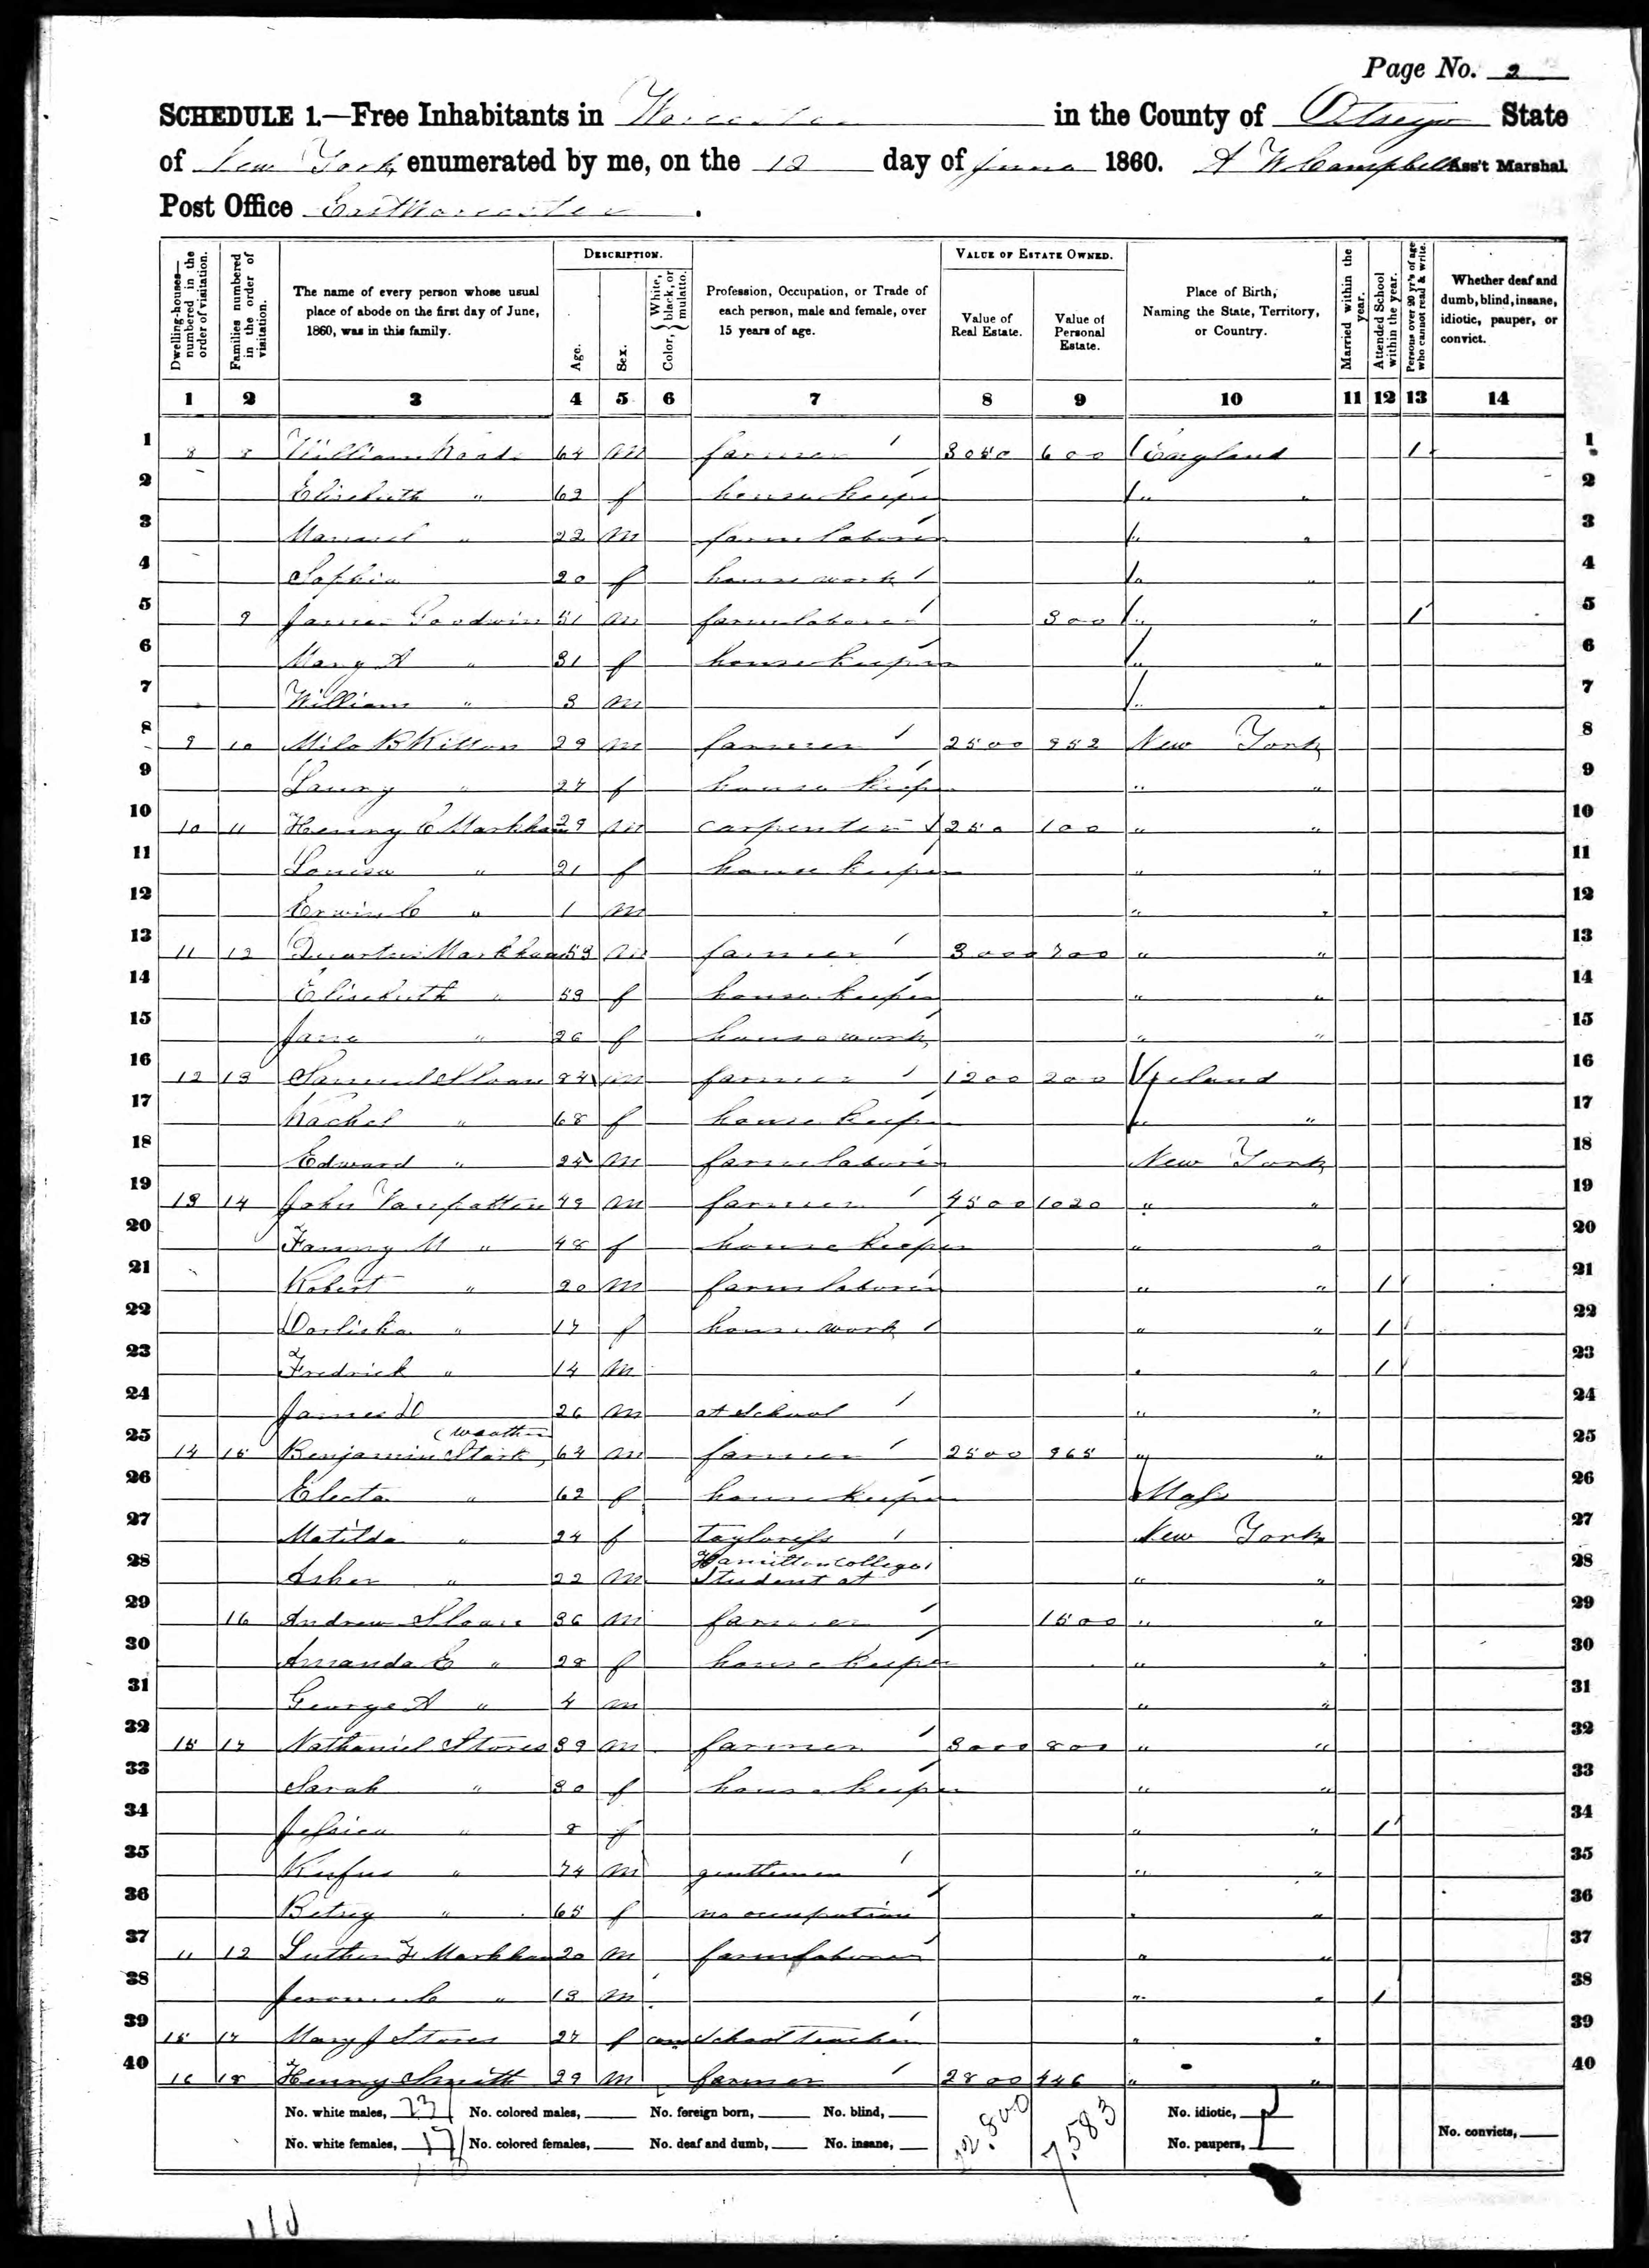 Page No. 2
SCHEDULE 1.—Free Inhabitants in Worcester in the County of Otsego State
of New York enumerated by me, on the 12 day of June 1860. A W Campbell Ass't Marshal
Post Office East Worcester.
Dwelling-houses— numbered in the order of visitation.
Families numbered in the order of visitation.
The name of every person whose usual place of abode on the first day of June, 1860, was in this family.
DESCRIPTION.
Age.
Sex.
Color, { White, black, or mulatto.
Profession, Occupation, or Trade of each person, male and female, over 15 years of age.
VALUE OF ESTATE OWNED.
Value of Real Estate.
Value of Personal Estate.
Place of Birth, Naming the State, Territory, or Country.
Married within the year.
Attended School within the year.
Persons over 20 yr's of age who cannot read & write.
Whether deaf and dumb, blind, insane, idiotic, pauper, or convict.
1 2 3 4 5 6 7 8 9 10 11 12 13 14
1 8 8 William 64 m farmer 3050 600 England 1 1
2 Elisebeth " 62 f house keeper " " 2
3 " 22 m farm laborer " " 3
4 Sophia 20 f house work " " 4
5 9 James Goodwin 51 m farm laborer 300 " " 1 5
6 Mary A " 31 f house keeper " " 6
7 William " 3 m " " 7
8 9 10 Milo B 29 m farmer 2500 952 New York 8
9 Laury " 27 f house keeper " " 9
10 10 11 Henry C Markham 29 m carpenter 250 100 " " 10
11 Louisa " 21 f house keeper " " 11
12 Erwin C " 1 m " " 12
13 11 12 Quartus Markham 53 m farmer 3000 700 " " 13
14 Elisebeth " 53 f house keeper " " 14
15 Jane " 26 f house work " " 15
16 12 13 Samuel Sloan 84 m farmer 1200 200 Ireland 16
17 Rachel " 68 f house keeper " " 17
18 Edward " 24 m farm laborer New York 18
19 13 14 John Vanpatten 49 m farmer 4500 1020 " " 19
20 Fanny M " 48 f house keeper " " 20
21 Robert " 20 m farm laborer " " 1 21
22 Dorliska " 17 f house work " " 1 22
23 Fredrick " 14 m " " 1 23
24 James D 26 m at school " " 24
25 14 15 Benjamin Stark 64 m farmer 2500 965 " " 25
26 Electa " 62 f house keeper Mass 26
27 Matilda " 24 f tayloress New York 27
28 Asher " 22 m Hamilton College Student at " " 28
29 16 Andrew Sloan 36 m farmer 1500 " " 29
30 Amanda E " 28 f house keeper " " 30
31 George A " 4 m " " 31
32 15 17 Nathaniel Stores 39 m farmer 3000 800 " " 32
33 Sarah " 30 f house keeper " " 33
34 Jessica " 8 f " " 1 34
35 Rufus " 74 m gentleman " " 35
36 Betsey " 65 f no occupation " " 36
37 11 12 Luther F Markham 20 m farm laborer " " 37
38 Jerome C " 13 m " " 1 38
39 15 17 Mary J Stores 27 f com School teacher " " 39
40 16 18 Henry Smith 29 m farmer 2800 446 " " 40
No. white males, 23 No. colored males, No. foreign born, No. blind, 22.800 7.583 No. idiotic,
No. white females, 17 No. colored females, No. deaf and dumb, No. insane, No. paupers, No. convicts,